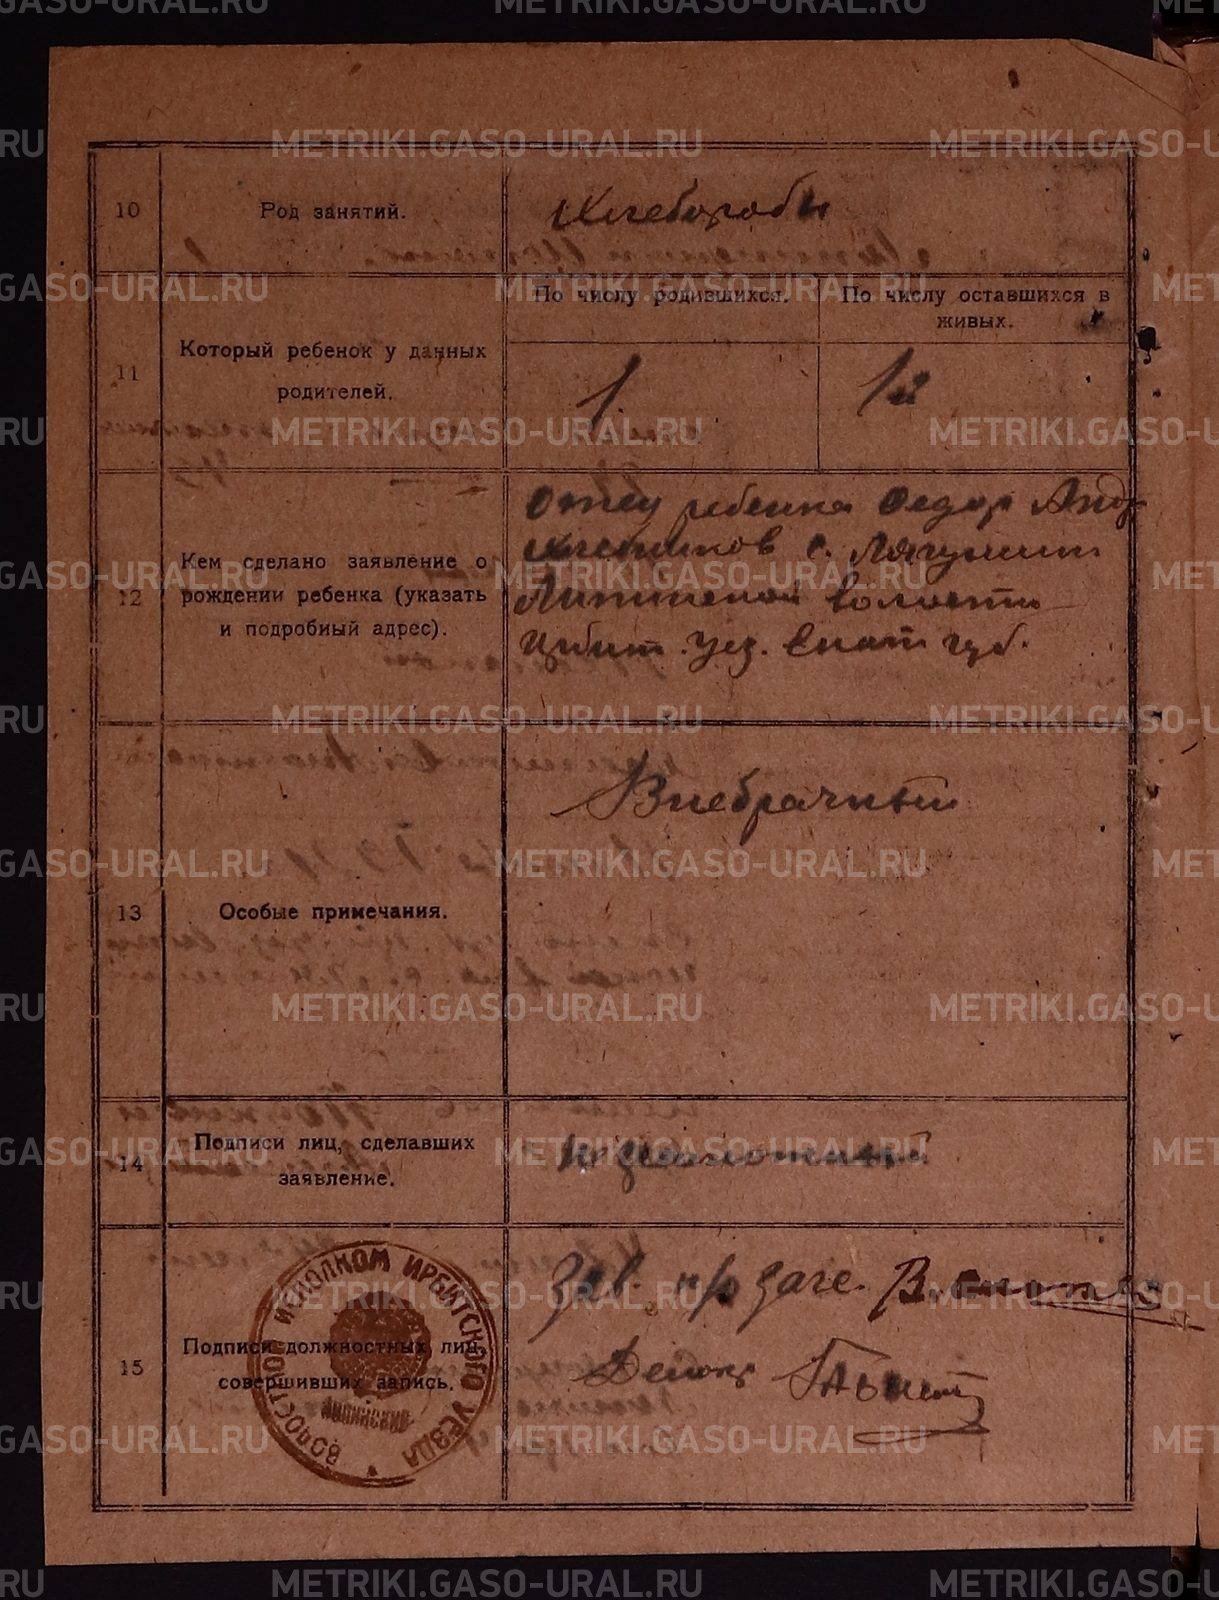 METRIKI.GASO-URAL.RU
10
Род занятий.
Хлеборобы
11
Который ребенок у данных
родителей.
По числу родившихся.
По числу оставшихся в
живых.
1.
1й
12
Кем сделано заявление о
рождении ребенка (указать
и подробный адрес).
Отец ребенка Федор Андр
с.
волости
Ирбит. уез. Екат губ.
13
Особые примечания.
Внебрачный
14
Подписи лиц, сделавших
заявление.
15
Подписи должностных лиц,
совершивших запись.
Зав. п/р
Делопр
ВОЛОСТНОЙ ИСПОЛКОМ ИРБИТСКОГО УЕЗДА